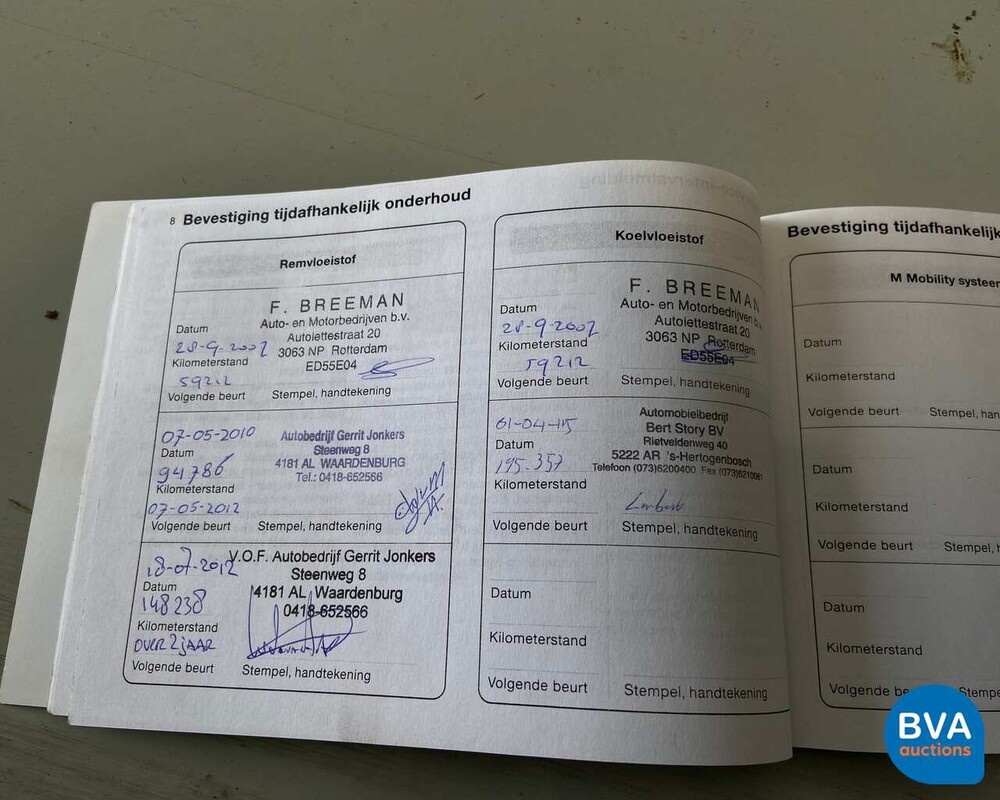 8 Bevestiging tijdafhankelijk onderhoud
Remvloeistof
F. BREEMAN
Auto- en Motorbedrijven b.v.
Autolettestraat 20
3063 NP Rotterdam
ED55E04
Datum
28-9-2007
Kilometerstand
59212
Volgende beurt
Stempel, handtekening
07-05-2010
Datum
94786
Kilometerstand
07-05-2012
Volgende beurt
Autobedrijf Gerrit Jonkers
Steenweg 8
4181 AL WAARDENBURG
Tel.: 0418-652566
Stempel, handtekening
18-07-2012
Datum
148238
Kilometerstand
OVER 2 JAAR
Volgende beurt
V.O.F. Autobedrijf Gerrit Jonkers
Steenweg 8
4181 AL Waardenburg
0418-652566
Stempel, handtekening
Koelvloeistof
F. BREEMAN
Auto- en Motorbedrijven b.v.
Autolettestraat 20
3063 NP Rotterdam
ED55E04
Datum
28-9-2007
Kilometerstand
59212
Volgende beurt
Stempel, handtekening
01-04-15
Datum
195.357
Kilometerstand
Volgende beurt
Automobielbedrijf
Bert Story BV
Rietveldenweg 40
5222 AR 's-Hertogenbosch
Telefoon (073)6200400 Fax (073)6210061
Stempel, handtekening
Datum
Kilometerstand
Volgende beurt
Stempel, handtekening
Bevestiging tijdafhankelijk
M Mobility systeem
Datum
Kilometerstand
Volgende beurt
Stempel, han
Datum
Kilometerstand
Volgende beurt
Stempel, h
Datum
Kilometerstand
Volgende be
Stempe
BVA
auctions